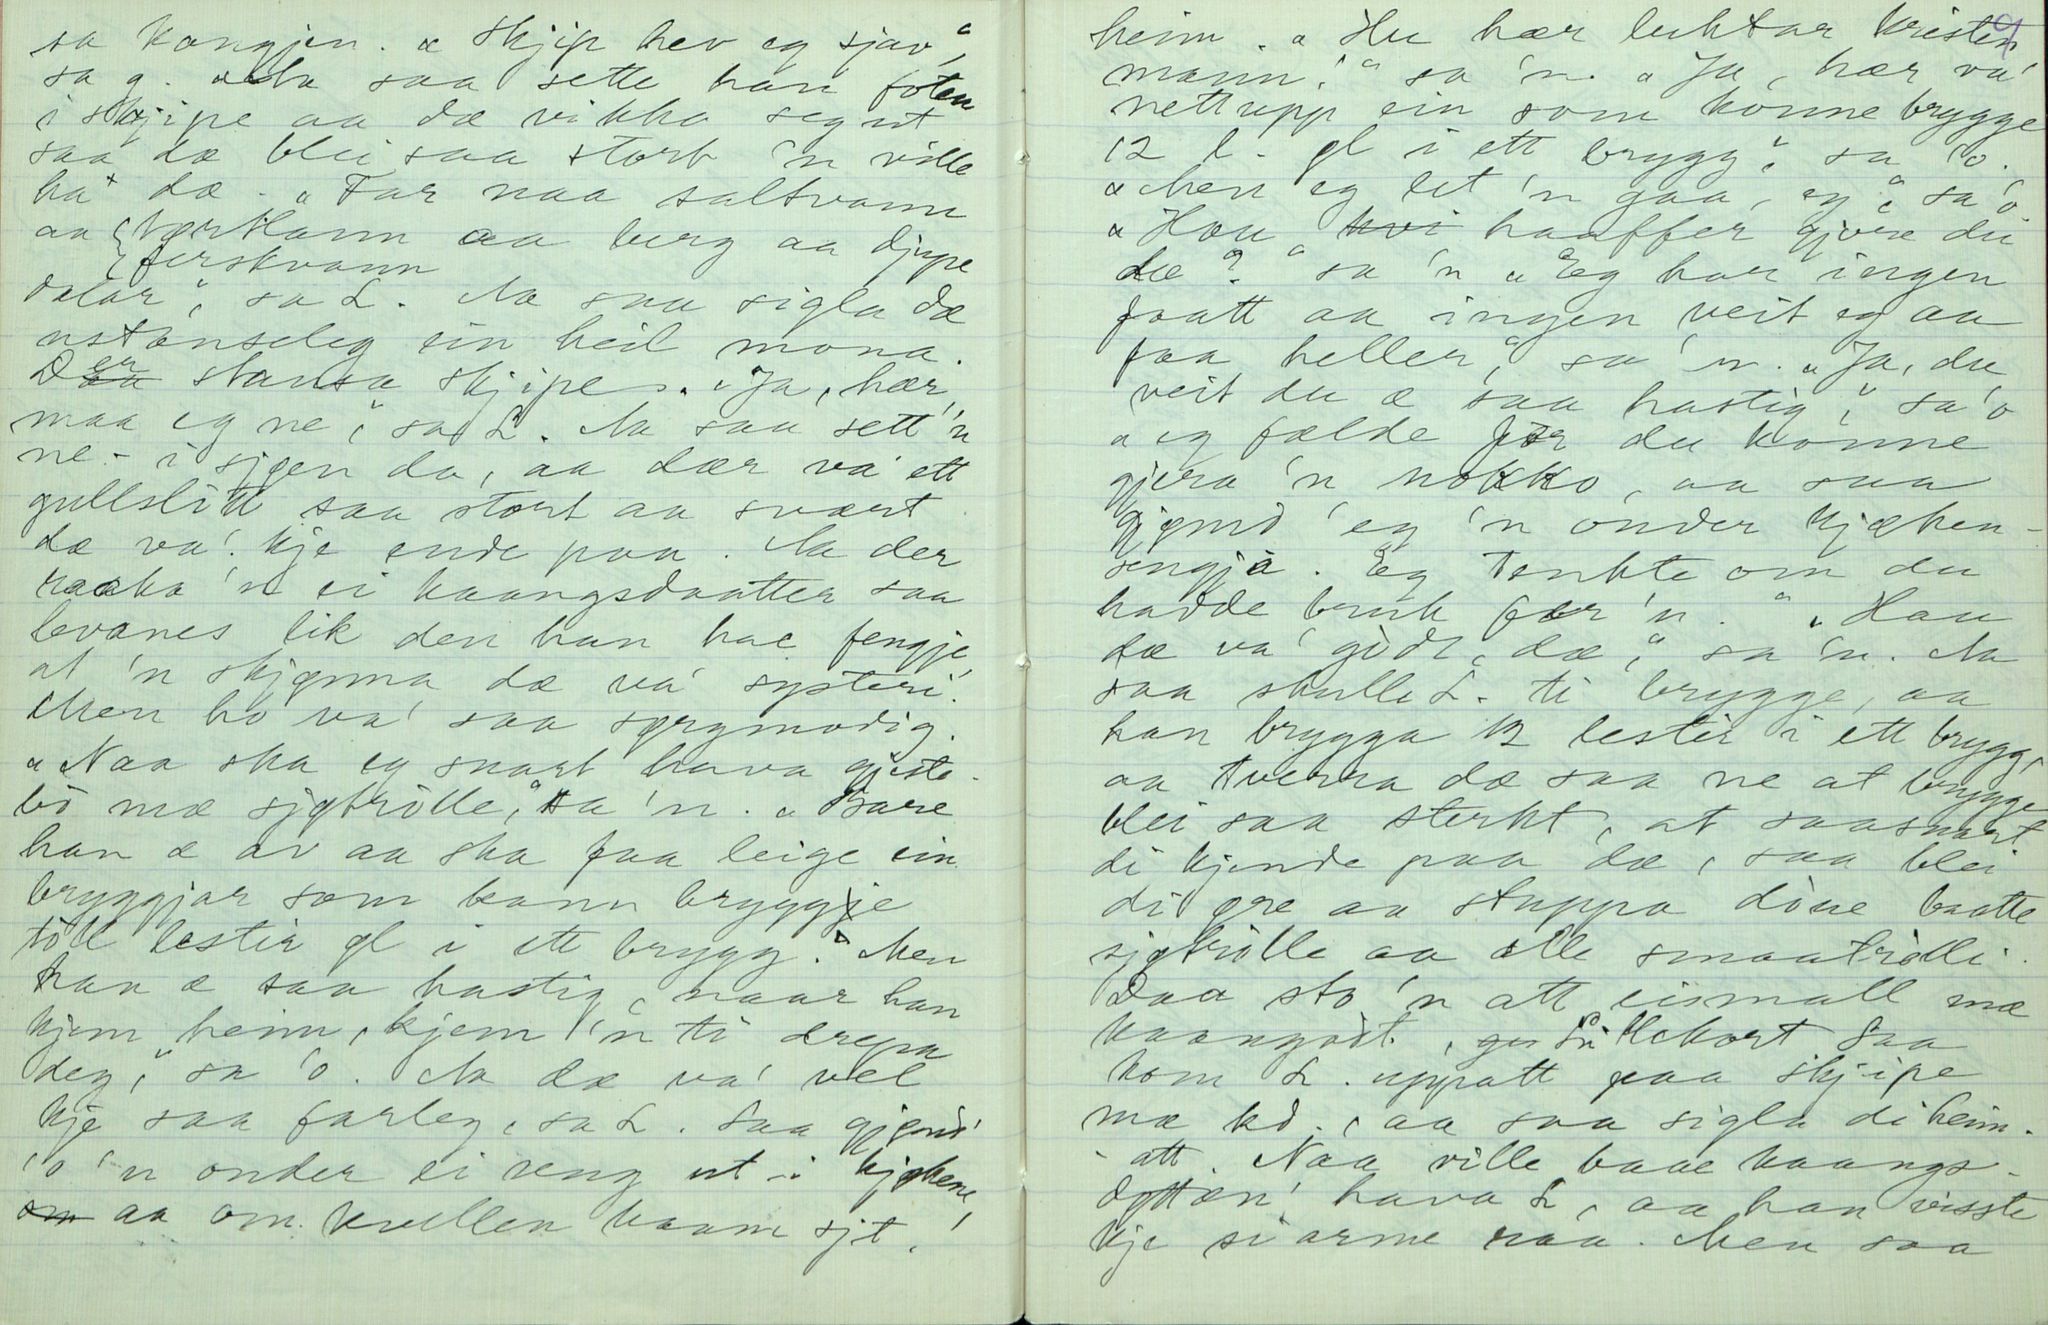 sa kongjen. „Skjip hev eg sjøv,"
sa g. Aa saa sette han foten
i skjipe aa dæ vikka seg ut
saa dæ blei saa stort 'n ville
ha' dæ. „Far naa saltvann
aa {værkann aa berg aa djupe
{ferskvann
dalar", sa L. Aa saa sigla dæ
ustanseleg ein heil mona.
Der stansa skjipe. „Ja, hær
maa eg ne," sa L. Aa saa sett 'n
ne - i sjøen da, aa dær va' ett
gullslått saa stort aa svært
dæ va' kje ende paa. Aa der
raaka 'n ei kaangsdaatter saa
levanes lik den han hae fengje,
at 'n skjønna dæ va' systeri.
Men ho va' saa sørgmodig.
„Naa ska eg snart hava gjeste-
bø mæ sjøtrølle," sa 'n. „Bare
han æ av aa ska faa leige ein
bryggjar som kann bryggje
tøll lestir øl i ett brygg." Men
han æ saa hastig, naar han
kjem heim, kjem 'n ti drepa
deg," sa 'o. Aa dæ va' vel
kje saa farleg, sa L. Saa gjømd'
'o 'n onder ei seng ut i kjøkene,
om aa om kvellen kaam sjt.
heim. „Hu hær luktar kristen
mann!" sa 'n. „Ja, hær va'
nettupp ein som konne brygge
12 l. øl i ett brygg", sa 'o.
„Men eg let 'n gaa, eg," sa 'o.
„Hau kvi haaffer gjore du
dæ?" sa 'n „Eg har ingen
faatt aa ingen veit eg aa
faa heller," sa 'n. „Ja, du
veit du æ saa hastig," sa 'o
„eg fælde før du konne
gjera 'n nokko, aa saa
gjømd' eg 'n onder kjøken-
sengjà. Eg tenkte om du
hadde bruk før 'n." „Hau
dæ va' godt, dæ," sa 'n. Aa
saa skulle L. ti brygge, aa
han brygga 12 lestir i ett brygg,
aa tverra dæ saa ne at brygge
blei saa sterkt, at saasnart
di kjende paa dæ, saa blei
di øre aa stuppa döue baatte
sjøtrølle aa alle smaatrølli.
Daa sto 'n att eismall mæ
kaangsdt. Saa
kom L. uppatt paa skjipe
mæ kd., aa saa sigla di heim-
att. Naa ville baae kaangs-
døttan' hava L, aa han visste
kje si arme raa. Men saa